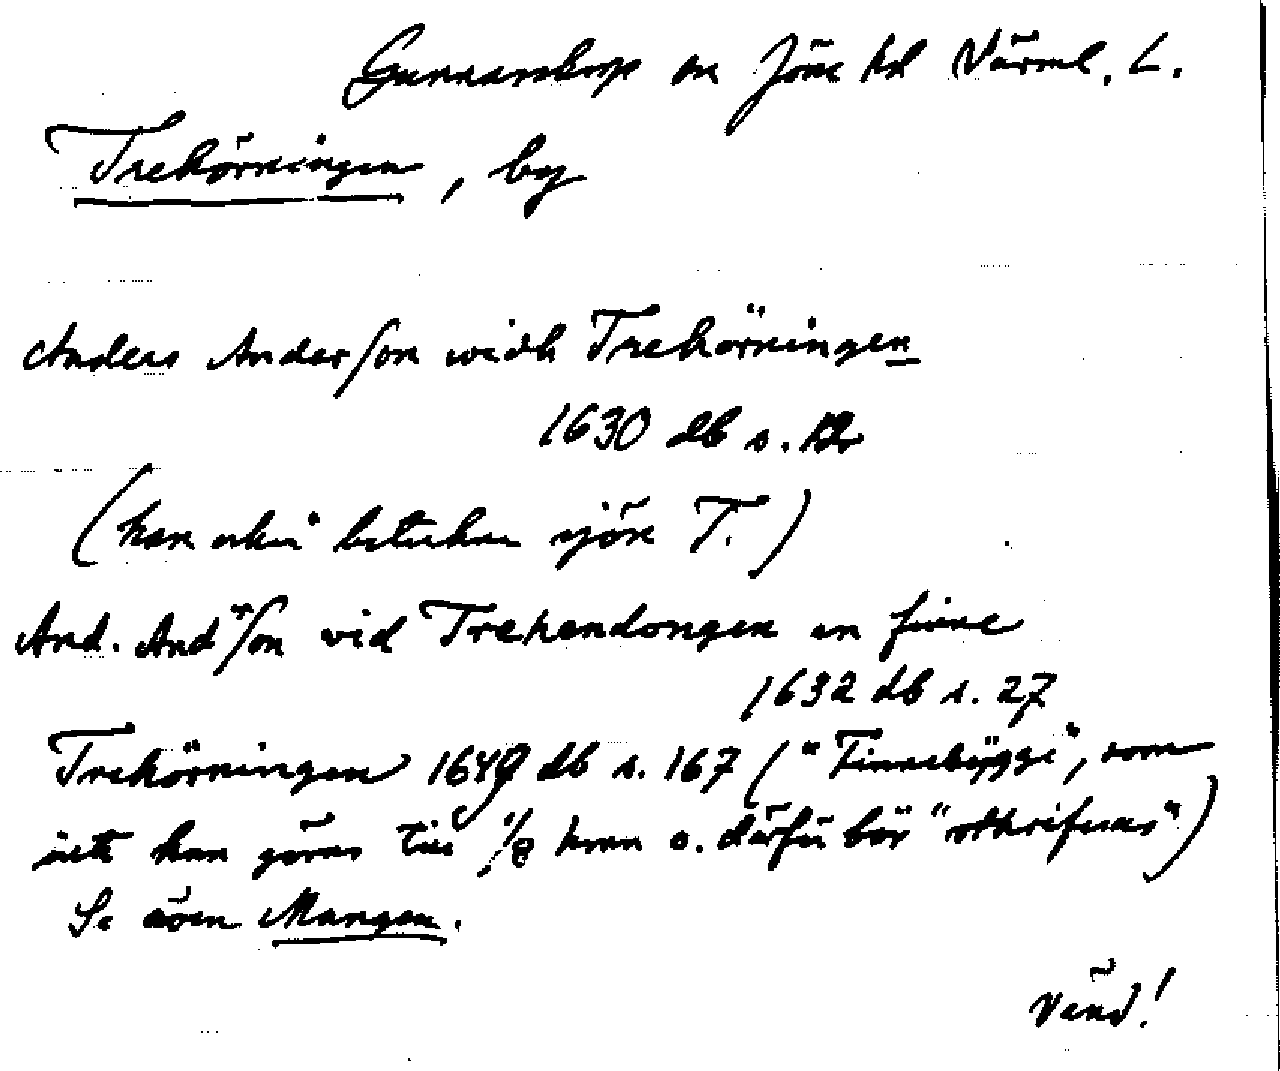 Gunnarskog sn Jösse hd Värml. L.
Trekörningen, by
Anders Anderſson widh Trekörningen
1630 db s.
(kan också beteckna sjön T.)
And. Andrſon vid Trehendongen en finne
1632 db s. 27
Trekörningen 1649 db s. 167 ("Finnebygge", som
icke kan göras till 1/8 hmn o. därför bör "uthrifwas")
Se även Mangen.
Vänd!